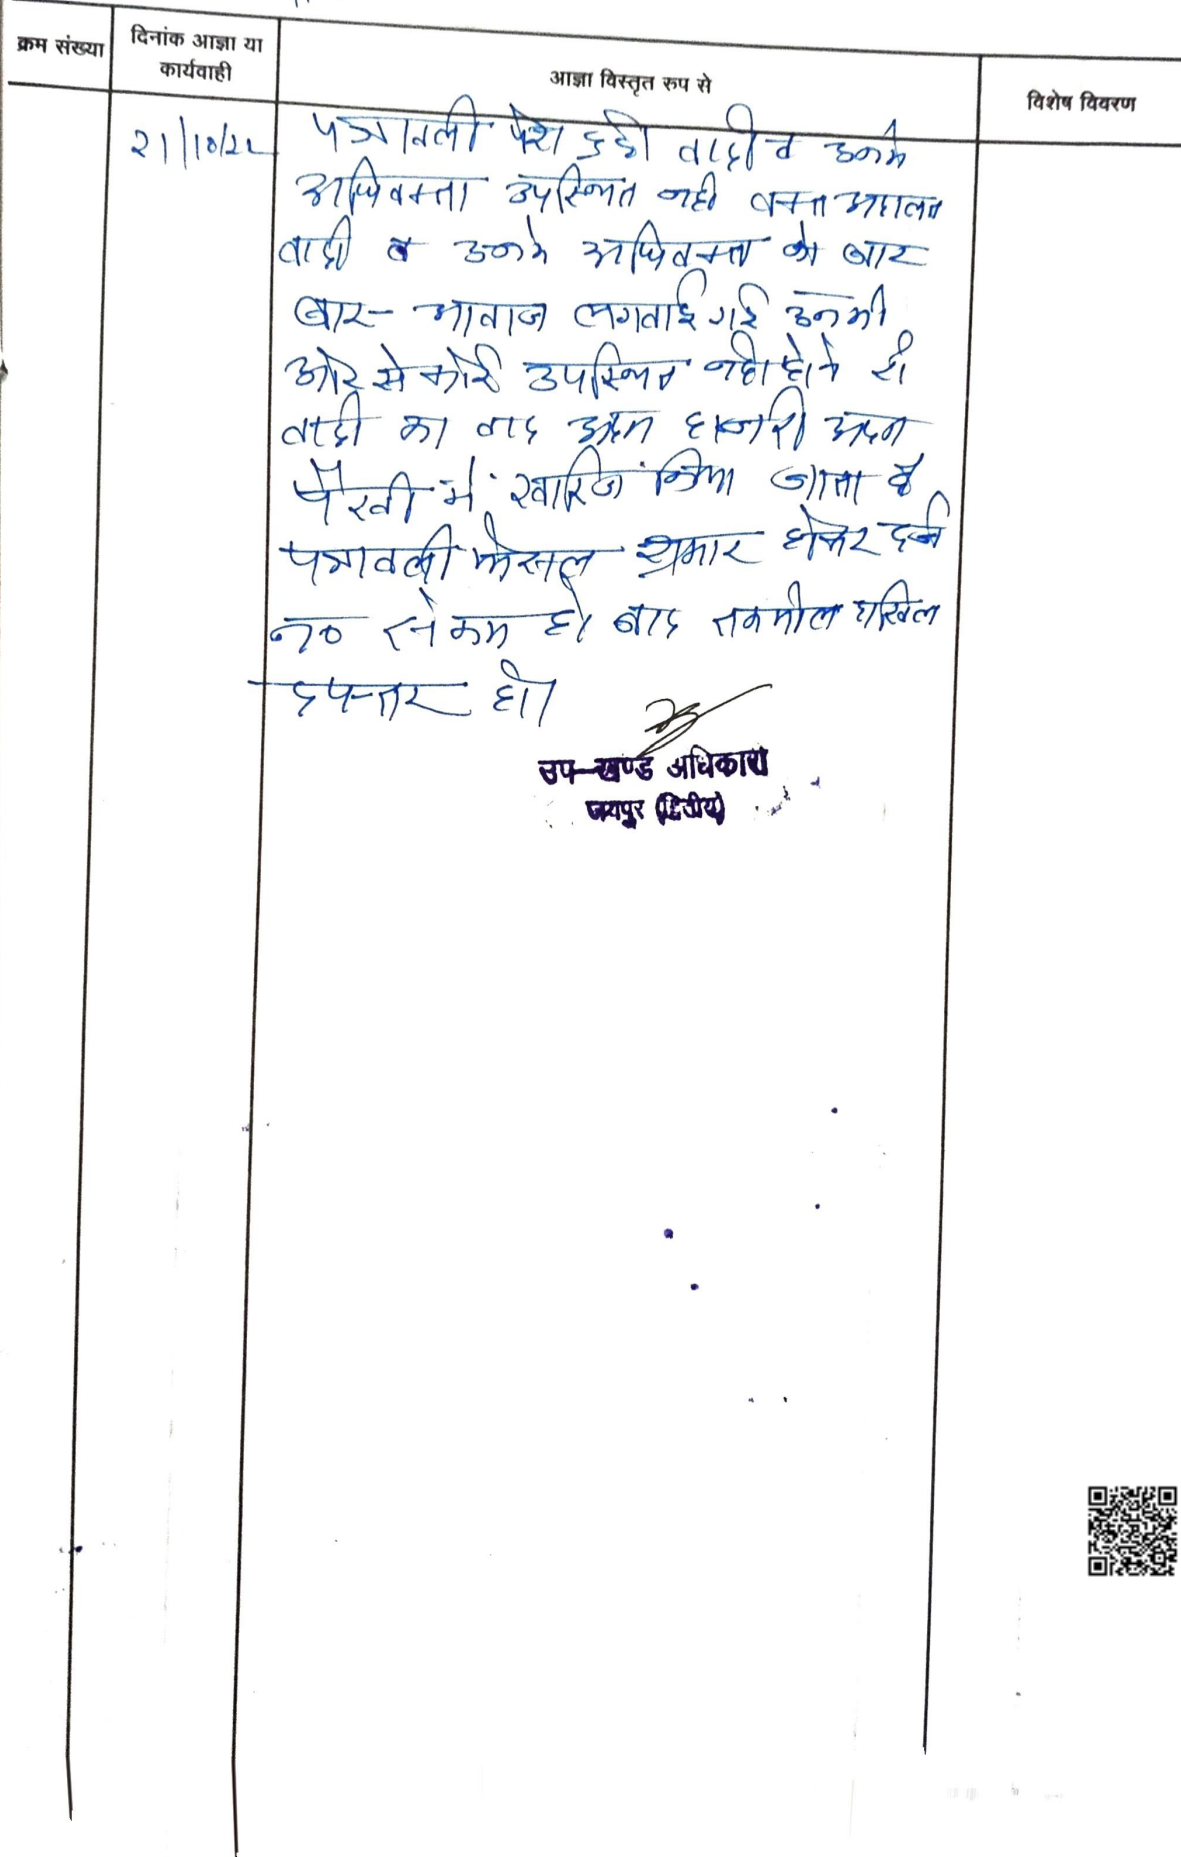 क्रम संख्या
दिनांक आज्ञा या
कार्यवाही
आज्ञा विस्तृत रुप से
विशेष विवरण
21/10/22
पत्रावली पेश हुई। वादी व उनके
अधिवक्ता उपस्थित नही वक्त अदालत
वादी व उनके अधिवक्ता को बार
बार- आवाज लगवाई गई उनकी
ओर से कोई उपस्थित नही होने से
वादी का वाद अदम हाजरी अदम
पैरवी में खारिज किया जाता है
पत्रावली फैसल शुमार होकर दर्ज
न० से कम हो बाद तकमील दाखिल
दफ्तर हो।
उप-खण्ड अधिकारी
जयपुर (द्वितीय)